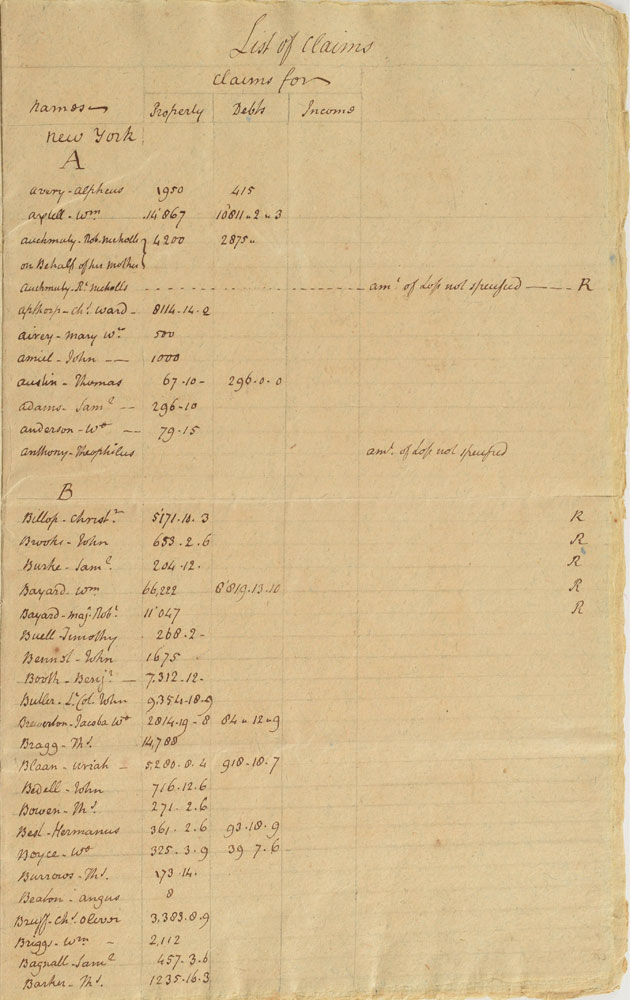 List of Claims
Claims for
Names Property Debts Income
New York
A
Avery - Alpheus 1950 415
Axtell - Wm 14'867 10'811 " 2 " 3
Auchmuty - Rob. Nicholls } 4200 2875 "
on Behalf of his Mother }
Auchmuty - Rt Nicholls - - - - - - - - amt of Loss not specified —— R
Apthorp - Chs Ward - 8114 - 14 - 2
Airey - Mary Ww 500
Amiel - John — 1000
Austin - Thomas 67 - 10 - 296 - 0 - 0
Adams - Saml — 296 - 10
Anderson - Wm — 79 - 15
Anthony - Theophilus amt of Loss not specified
B
Billop - Christr 5'171 . 10 . 3 R
Brooks - John 653 . 2 . 6 R
Burke - Saml 204 - 12 - R
Bayard Wm 66,222 8'819 . 13 . 10 R
Bayard - Maj. Robt 11'047 R
Buell - Timothy 268 . 2 -
Bennot - John 1675
Booth - Benjn — 7.312 . 12 -
Butler - Lt Col. John 9.354 - 18 - 9
Jacoba Ww 2814 - 19 - 8 84 " 12 " 9
Bragg - Ths 14,788
Blaan - Uriah - 5,280 . 8 . 4 918 - 18 . 7
Bedell - John 716 . 12 . 6
Bowen - Ths 271 - 2 . 6
Best - Hermanus 361 . 2 . 6 93 . 18 . 9
Boyce - Wm 325 . 3 . 9 39 7 . 6
Burrows - Ths 173 - 14 .
Beaton - Angus 8
Bruff - Chs Oliver 3,383 . 8 . 9
Briggs - Wm - 2,112
Bagnall - Saml 457 - 3 . 6
Barker - Ths 1235 . 16 . 3